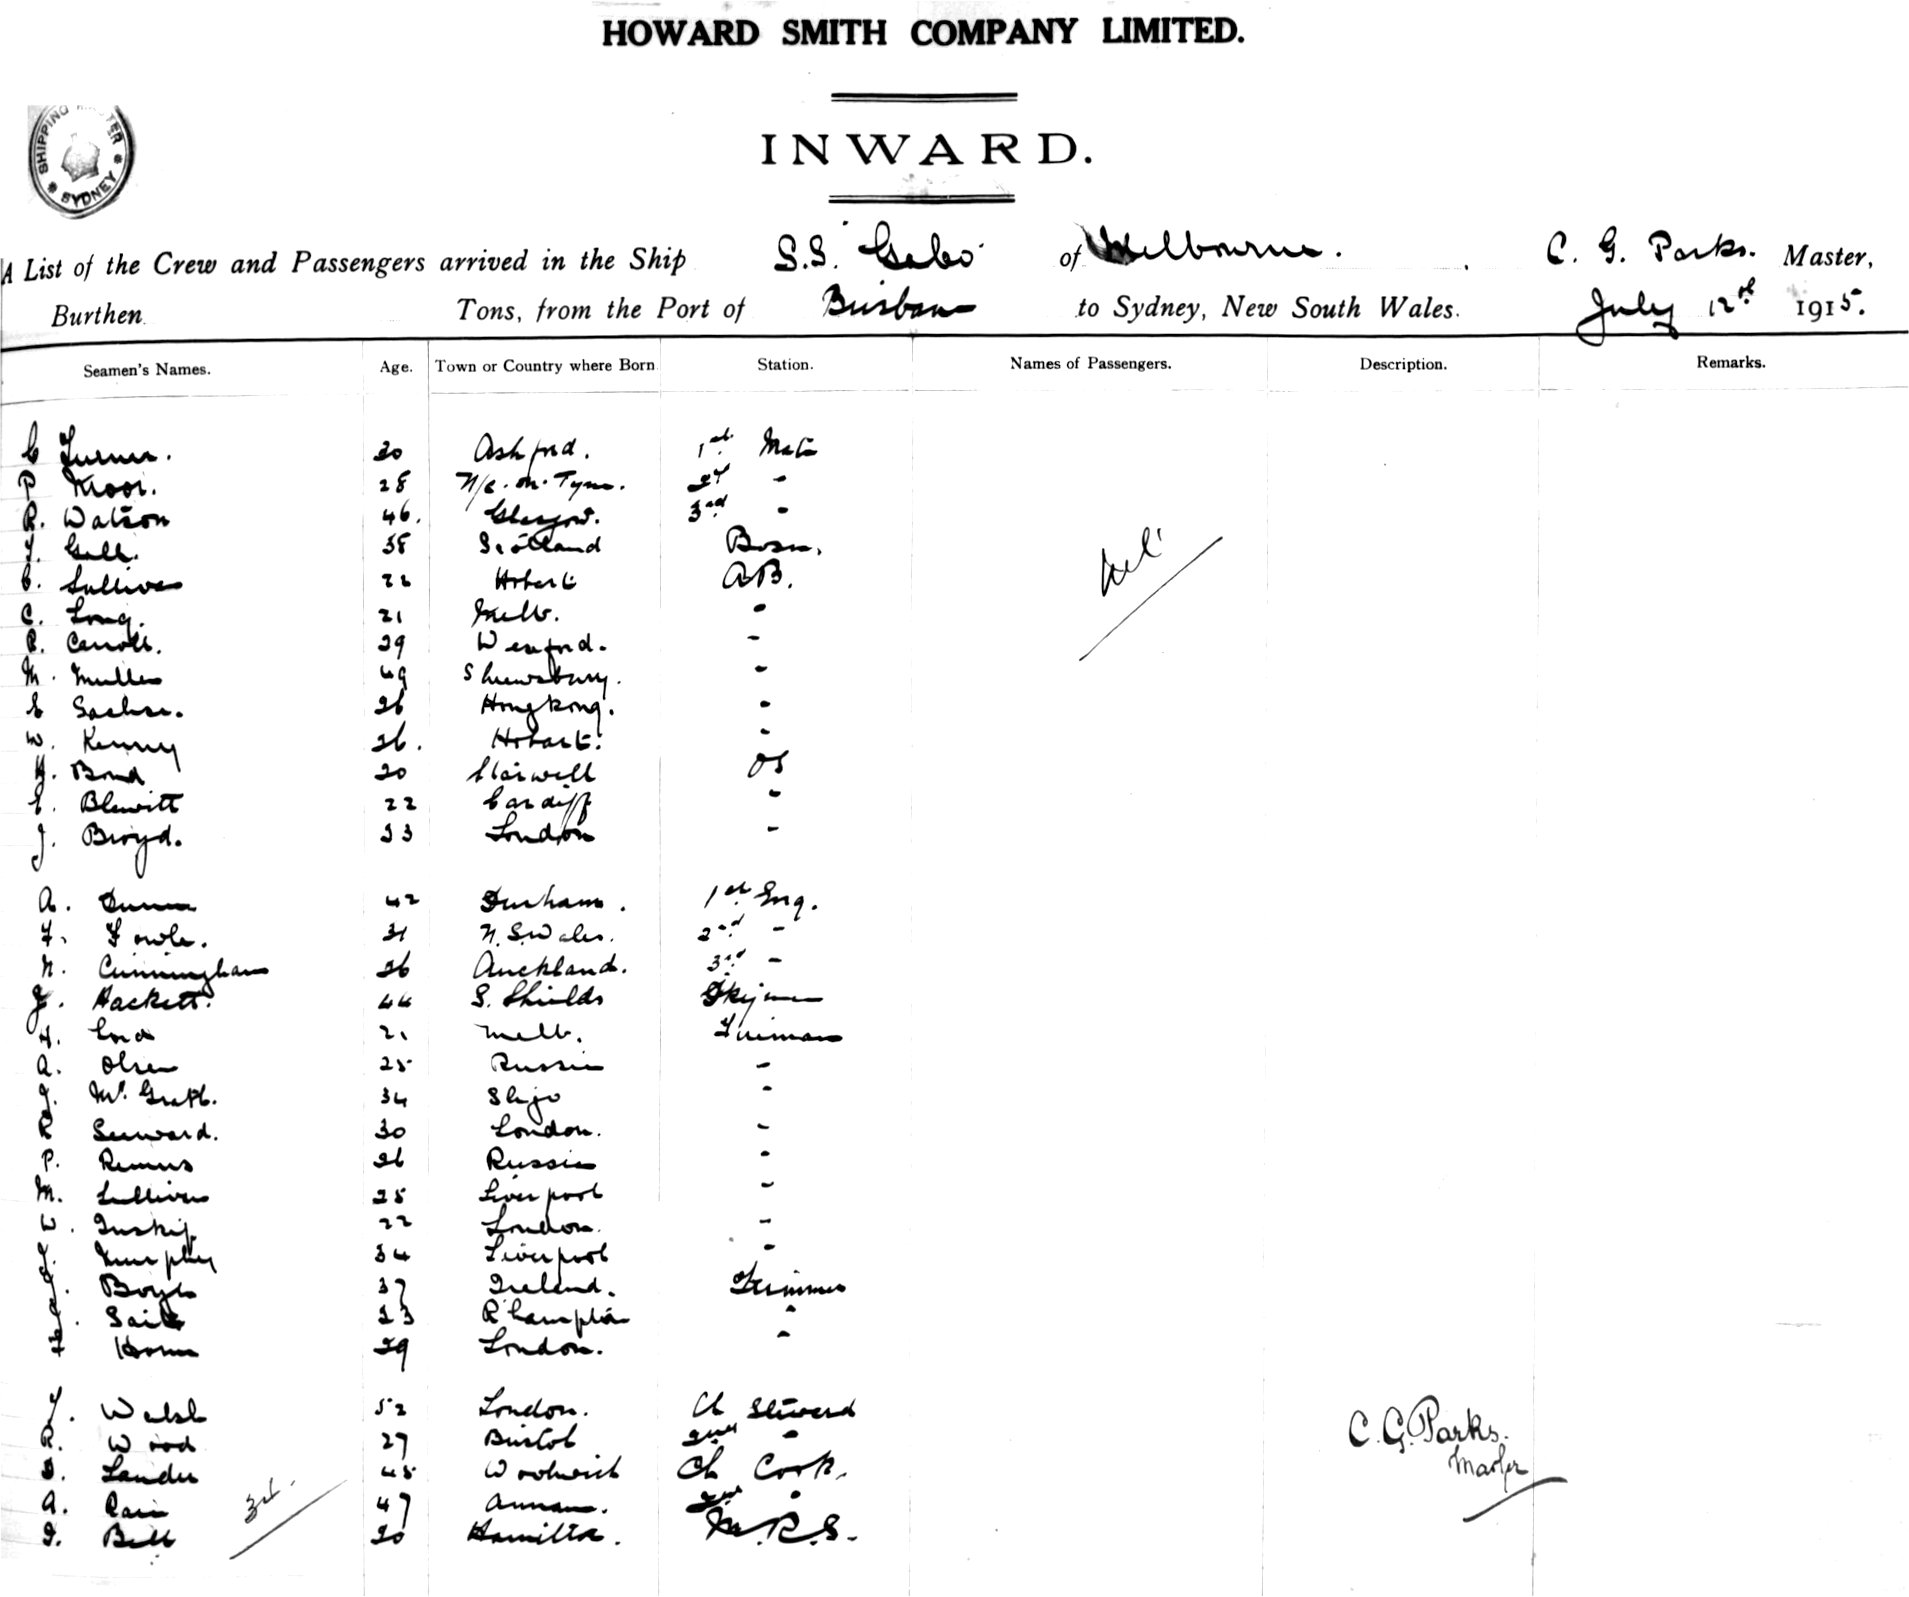 HOWARD SMITH COMPANY LIMITED.
INWARD.
SHIPPING MASTER SYDNEY
A List of the Crew and Passengers arrived in the Ship S.S. "Gabo" of Melbourne. C. G. Parks. Master,
Burthen Tons, from the Port of Brisbane to Sydney, New South Wales. July 12th 1915.
Seamen's Names. Age. Town or Country where Born Station. Names of Passengers. Description. Remarks.
C Turner. 30 Ashford. 1st Mate
P Moor. 28 N/c. on. Tyne. 2nd "
R. Watson 46. Glasgow. 3rd "
Gall. 38 Scotland Bosn.
C. Sullivan 22 Hobart AB.
C. Long. 21 Melb. "
P. Carroll. 29 Wexford. "
M. Muller 49 Shrewsbury. "
E Sachse. 26 Hongkong. "
W. Kenny 26. Hobart. "
Bond 20 Stawell OS
E. Blewitt 22 Cardiff "
J. Broyd. 23 London "
A. Dunn 42 Durham. 1st Eng.
F. Fowle. 31 N. S. Wales. 2nd "
N. Cunningham 26 Auckland. 3rd "
J. Hackett. 44 S. Shields Dkyman
H. Cord 21 Melb. Fireman
A. Olsen 25 Russia "
J. McGrath. 34 Sligo "
R Seeward. 30 London. "
P. Remus 26 Russia "
M. Sullivan 25 Liverpool "
W. Inskip 22 London. "
J. Murphy 34 Liverpool "
J. Boyle 37 Ireland. Trimmer
J. 23 R'hampton "
F Horne 29 London. "
nil
T. Walsh 52 London. Ch Steward
R. Wood 27 Bristol 2nd "
Lander 45 Woolwich Ch Cook.
A. Rain 47 Annan. 2nd "
Bell 20 Hamilton. M.R.S.
C. G. Parks.
Master